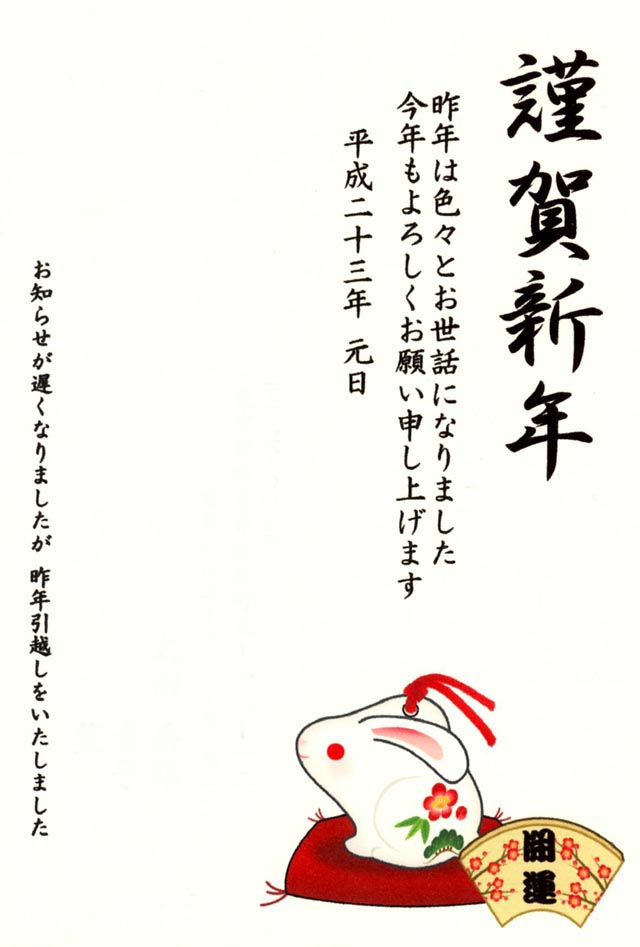 謹賀新年
昨年は色々とお世話になりました
今年もよろしくお願い申し上げます
平成二十三年 元日
お知らせが遅くなりましたが 昨年引越しをいたしました
開運